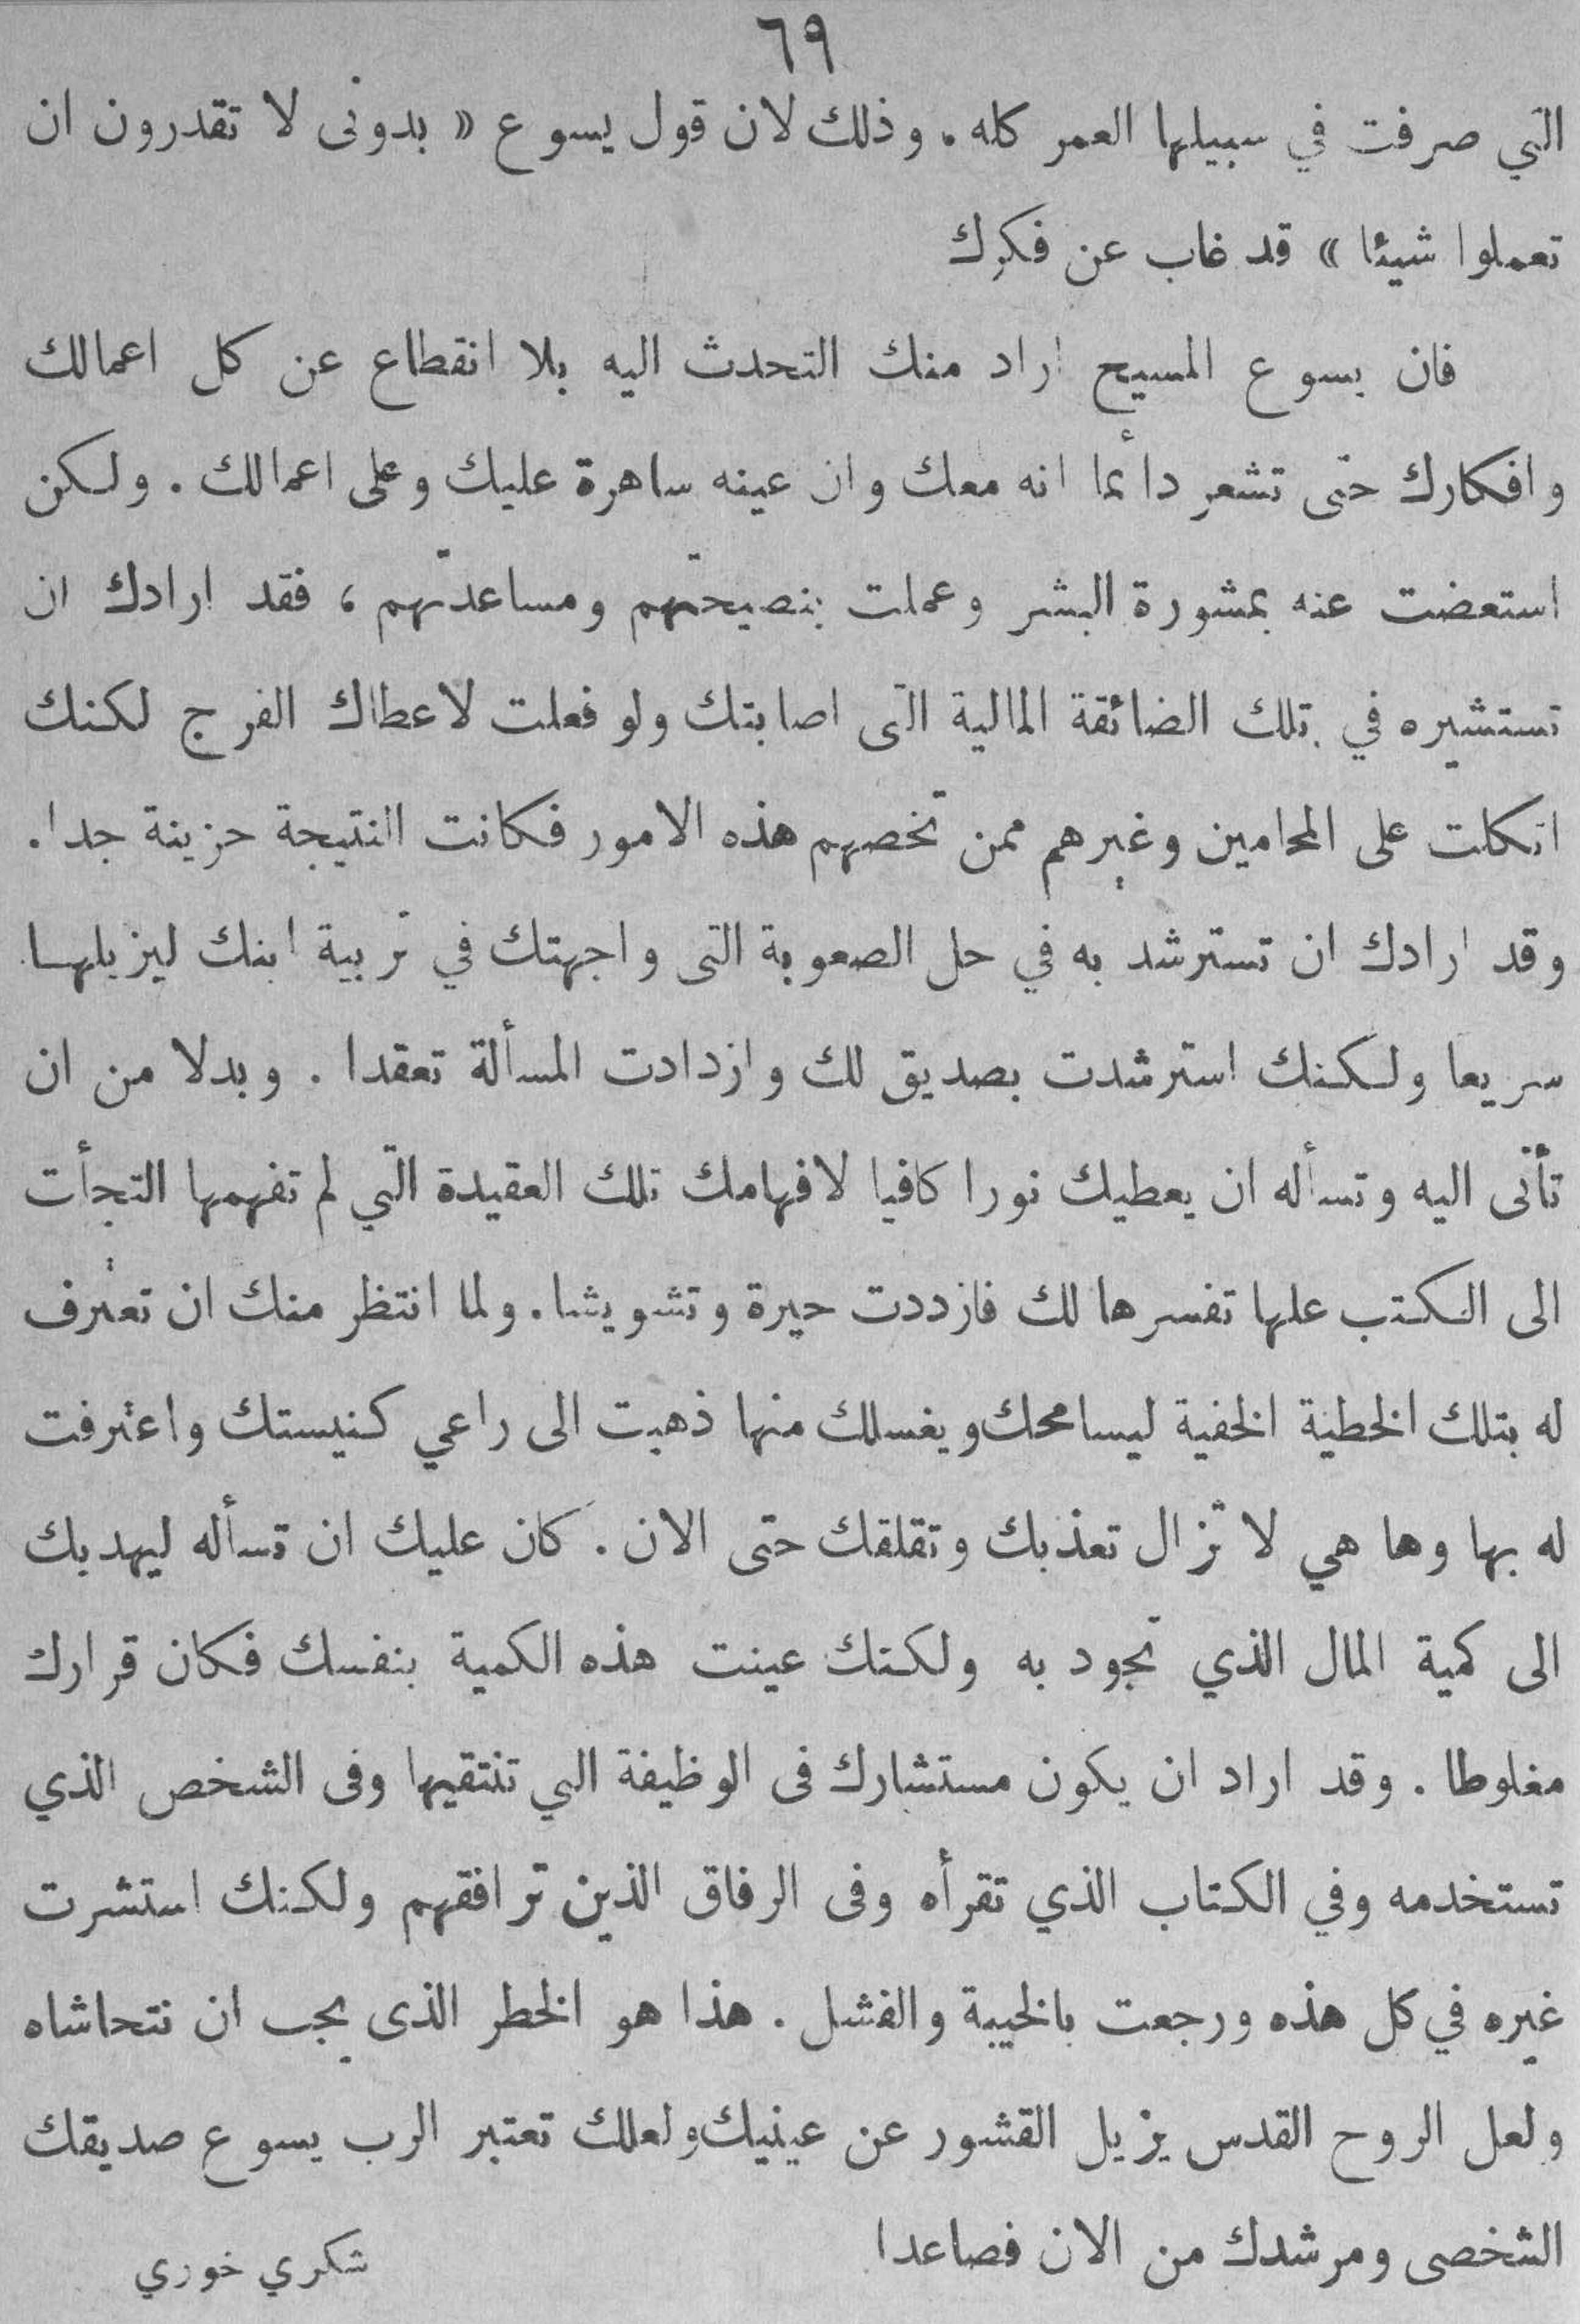 ٦٩
التي صرفت في سبيلها العمر كله . وذلك لان قول يسوع « بدونى لا تقدرون ان
تعملوا شيئا » قد غاب عن فكرك
فان يسوع المسيح اراد منك التحدث اليه بلا انقطاع عن كل اعمالك
وافكارك حتى تشعر دائما انه معك وان عينه ساهرة عليك وعلى اعمالك . ولكن
استعضت عنه بمشورة البشر وعملت بنصيحتهم ومساعدتهم ، فقد ارادك ان
تستشيره في تلك الضائقة المالية التى اصابتك ولو فعلت لاعطاك الفرج لكنك
اتكلت على المحامين وغيرهم ممن تخصهم هذه الامور فكانت النتيجة حزينة جدا .
وقد ارادك ان تسترشد به في حل الصعوبة التى واجهتك في تربية ابنك ليزيلها
سريعا ولكنك استرشدت بصديق لك وازدادت المسألة تعقدا . وبدلا من ان
تأتى اليه وتسأله ان يعطيك نورا كافيا لافهامك تلك العقيدة التي لم تفهمها التجأت
الى الكتب علها تفسرها لك فازددت حيرة وتشويشا . ولما انتظر منك ان تعترف
له بتلك الخطية الخفية ليسامحك ويغسلك منها ذهبت الى راعي كنيستك واعترفت
له بها وها هي لا تزال تعذبك وتقلقك حتى الان . كان عليك ان تسأله ليهديك
الى كمية المال الذي تجود به ولكنك عينت هذه الكمية بنفسك فكان قرارك
مغلوطا . وقد اراد ان يكون مستشارك فى الوظيفة التي تنتقيها وفى الشخص الذي
تستخدمه وفي الكتاب الذي تقرأه وفى الرفاق الذين ترافقهم ولكنك استشرت
غيره في كل هذه ورجعت بالخيبة والفشل . هذا هو الخطر الذى يجب ان نتحاشاه
ولعل الروح القدس يزيل القشور عن عينيك ولعلك تعتبر الرب يسوع صديقك
الشخصى ومرشدك من الان فصاعدا
شكري خوري